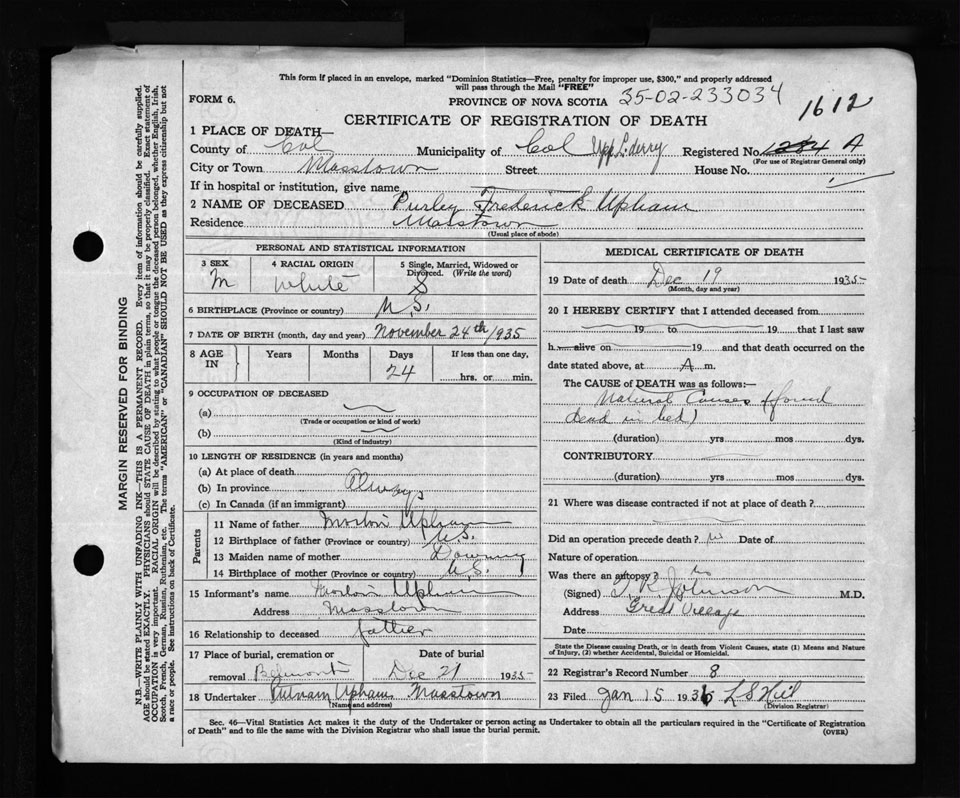 This form if placed in an envelope, marked "Dominion Statistics—Free, penalty for improper use, $300," and properly addressed
will pass through the Mail "FREE"
FORM 6.
PROVINCE OF NOVA SCOTIA 35-02-233034
1612
CERTIFICATE OF REGISTRATION OF DEATH
1 PLACE OF DEATH—
County of Col Municipality of Col Upp L.derry Registered No. 1284 A
(For use of Registrar General only)
City or Town Masstown Street House No.
If in hospital or institution, give name
2 NAME OF DECEASED Purley Frederick Upham
Residence Masstown
(Usual place of abode)
PERSONAL AND STATISTICAL INFORMATION
3 SEX M
4 RACIAL ORIGIN White
5 Single, Married, Widowed or Divorced. (Write the word) S
6 BIRTHPLACE (Province or country) N.S.
7 DATE OF BIRTH (month, day and year) November 24th/935
8 AGE IN Years Months Days 24 If less than one day, hrs. or min.
9 OCCUPATION OF DECEASED
(a)
(Trade or occupation or kind of work)
(b)
(Kind of industry)
10 LENGTH OF RESIDENCE (in years and months)
(a) At place of death
(b) In province Always
(c) In Canada (if an immigrant)
Parents
11 Name of father Morton Upham
12 Birthplace of father (Province or country) N.S.
13 Maiden name of mother Downing
14 Birthplace of mother (Province or country) N.S.
15 Informant's name Morton Upham
Address Masstown
16 Relationship to deceased father
17 Place of burial, cremation or removal Belmont Date of burial Dec 21 1935
18 Undertaker Putnam Upham Masstown
(Name and address)
MEDICAL CERTIFICATE OF DEATH
19 Date of death Dec 19 1935
(Month, day and year)
20 I HEREBY CERTIFY that I attended deceased from
19 to 19 that I last saw
h alive on 19 and that death occurred on the
date stated above, at A m.
The CAUSE of DEATH was as follows:—
Natural Causes (found
dead in bed)
(duration) yrs mos dys.
CONTRIBUTORY
(duration) yrs mos dys.
21 Where was disease contracted if not at place of death?
Did an operation precede death? no Date of
Nature of operation
Was there an autopsy? no
(Signed) T. R. Johnson M.D.
Address Great Village
Date
State the Disease causing Death, or in death from Violent Causes, state (1) Means and Nature
of Injury, (2) whether Accidental, Suicidal or Homicidal.
22 Registrar's Record Number 8
23 Filed Jan 15 1936 L S
(Division Registrar)
Sec. 46—Vital Statistics Act makes it the duty of the Undertaker or person acting as Undertaker to obtain all the particulars required in the "Certificate of Registration
of Death" and to file the same with the Division Registrar who shall issue the burial permit.
(OVER)
MARGIN RESERVED FOR BINDING
N.B.—WRITE PLAINLY WITH UNFADING INK—THIS IS A PERMANENT RECORD. Every item of information should be carefully supplied.
AGE should be stated EXACTLY. PHYSICIANS should STATE CAUSE OF DEATH in plain terms, so that it may be properly classified. Exact statement of
OCCUPATION is very important. RACIAL ORIGIN will be described by stating to what people or tongue the deceased person belonged, whether English, Irish,
Scotch, French, German, Russian, Ruthenian, etc. The terms "AMERICAN" or "CANADIAN" SHOULD NOT BE USED as they express citizenship but not
a race or people. See instructions on back of Certificate.